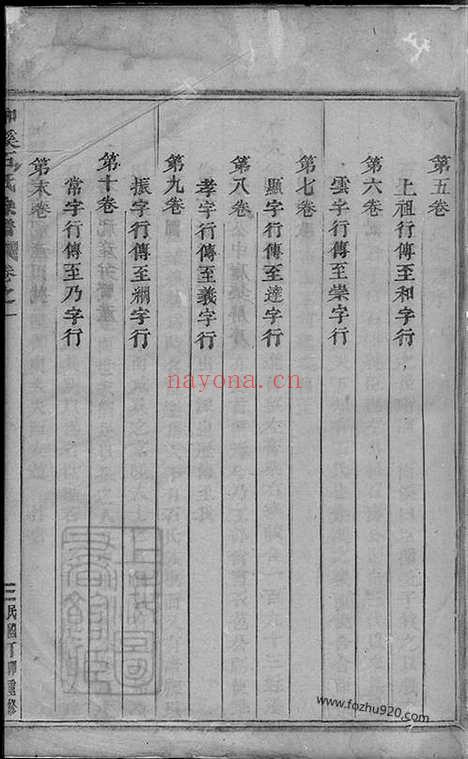 第五卷
上祖行傳至和字行
第六卷
雲字行傳至崇字行
第七卷
顯字行傳至達字行
第八卷
孝字行傳至義字行
第九卷
振字行傳至綱字行
第十卷
常字行傳至乃字行
第末卷
溪 氏 譜 卷之一
三 民國丁 重修
nayona.cn
www.fozhu920.com